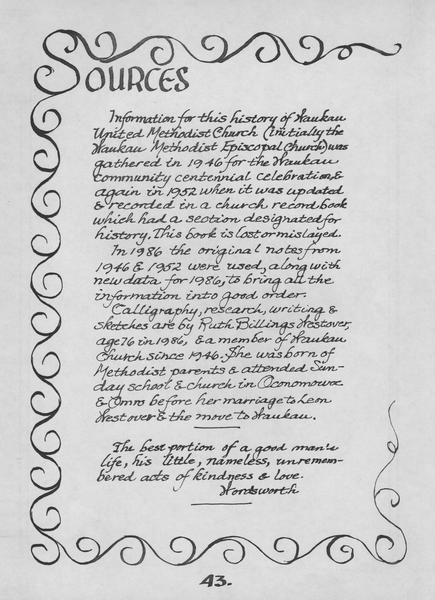 SOURCES
Information for this history of Waukau
United Methodist Church (initially the
Waukau Methodist Episcopal Church) was
gathered in 1946 for the Waukau
community centennial celebration, &
again in 1952 when it was updated
& recorded in a church record book
which had a section designated for
history. This book is lost or mislayed.
In 1986 the original notes from
1946 & 1952 were used, along with
new data for 1986, to bring all the
information into good order.
Calligraphy, research, writing &
sketches are by Ruth Billings Westover,
age 76 in 1986, & a member of Waukau
Church since 1946. She was born of
Methodist parents & attended Sun-
day school & church in Oconomowoc
& Omro before her marriage to Leon
Westover & the move to Waukau.
The best portion of a good man's
life, his little, nameless, unremem-
bered acts of kindness & love.
Wordsworth
43.